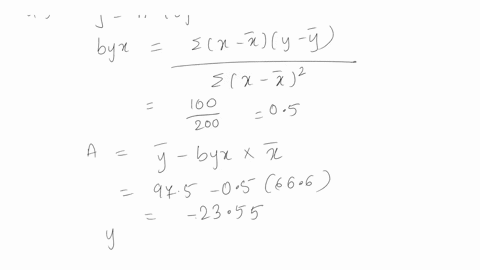 byx = Σ(x - x̄)(y - ȳ) / Σ(x - x̄)²
= 100/200 = 0.5
A = ȳ - byx × x̄
= 97.5 - 0.5 (66.6)
= -23.55
y